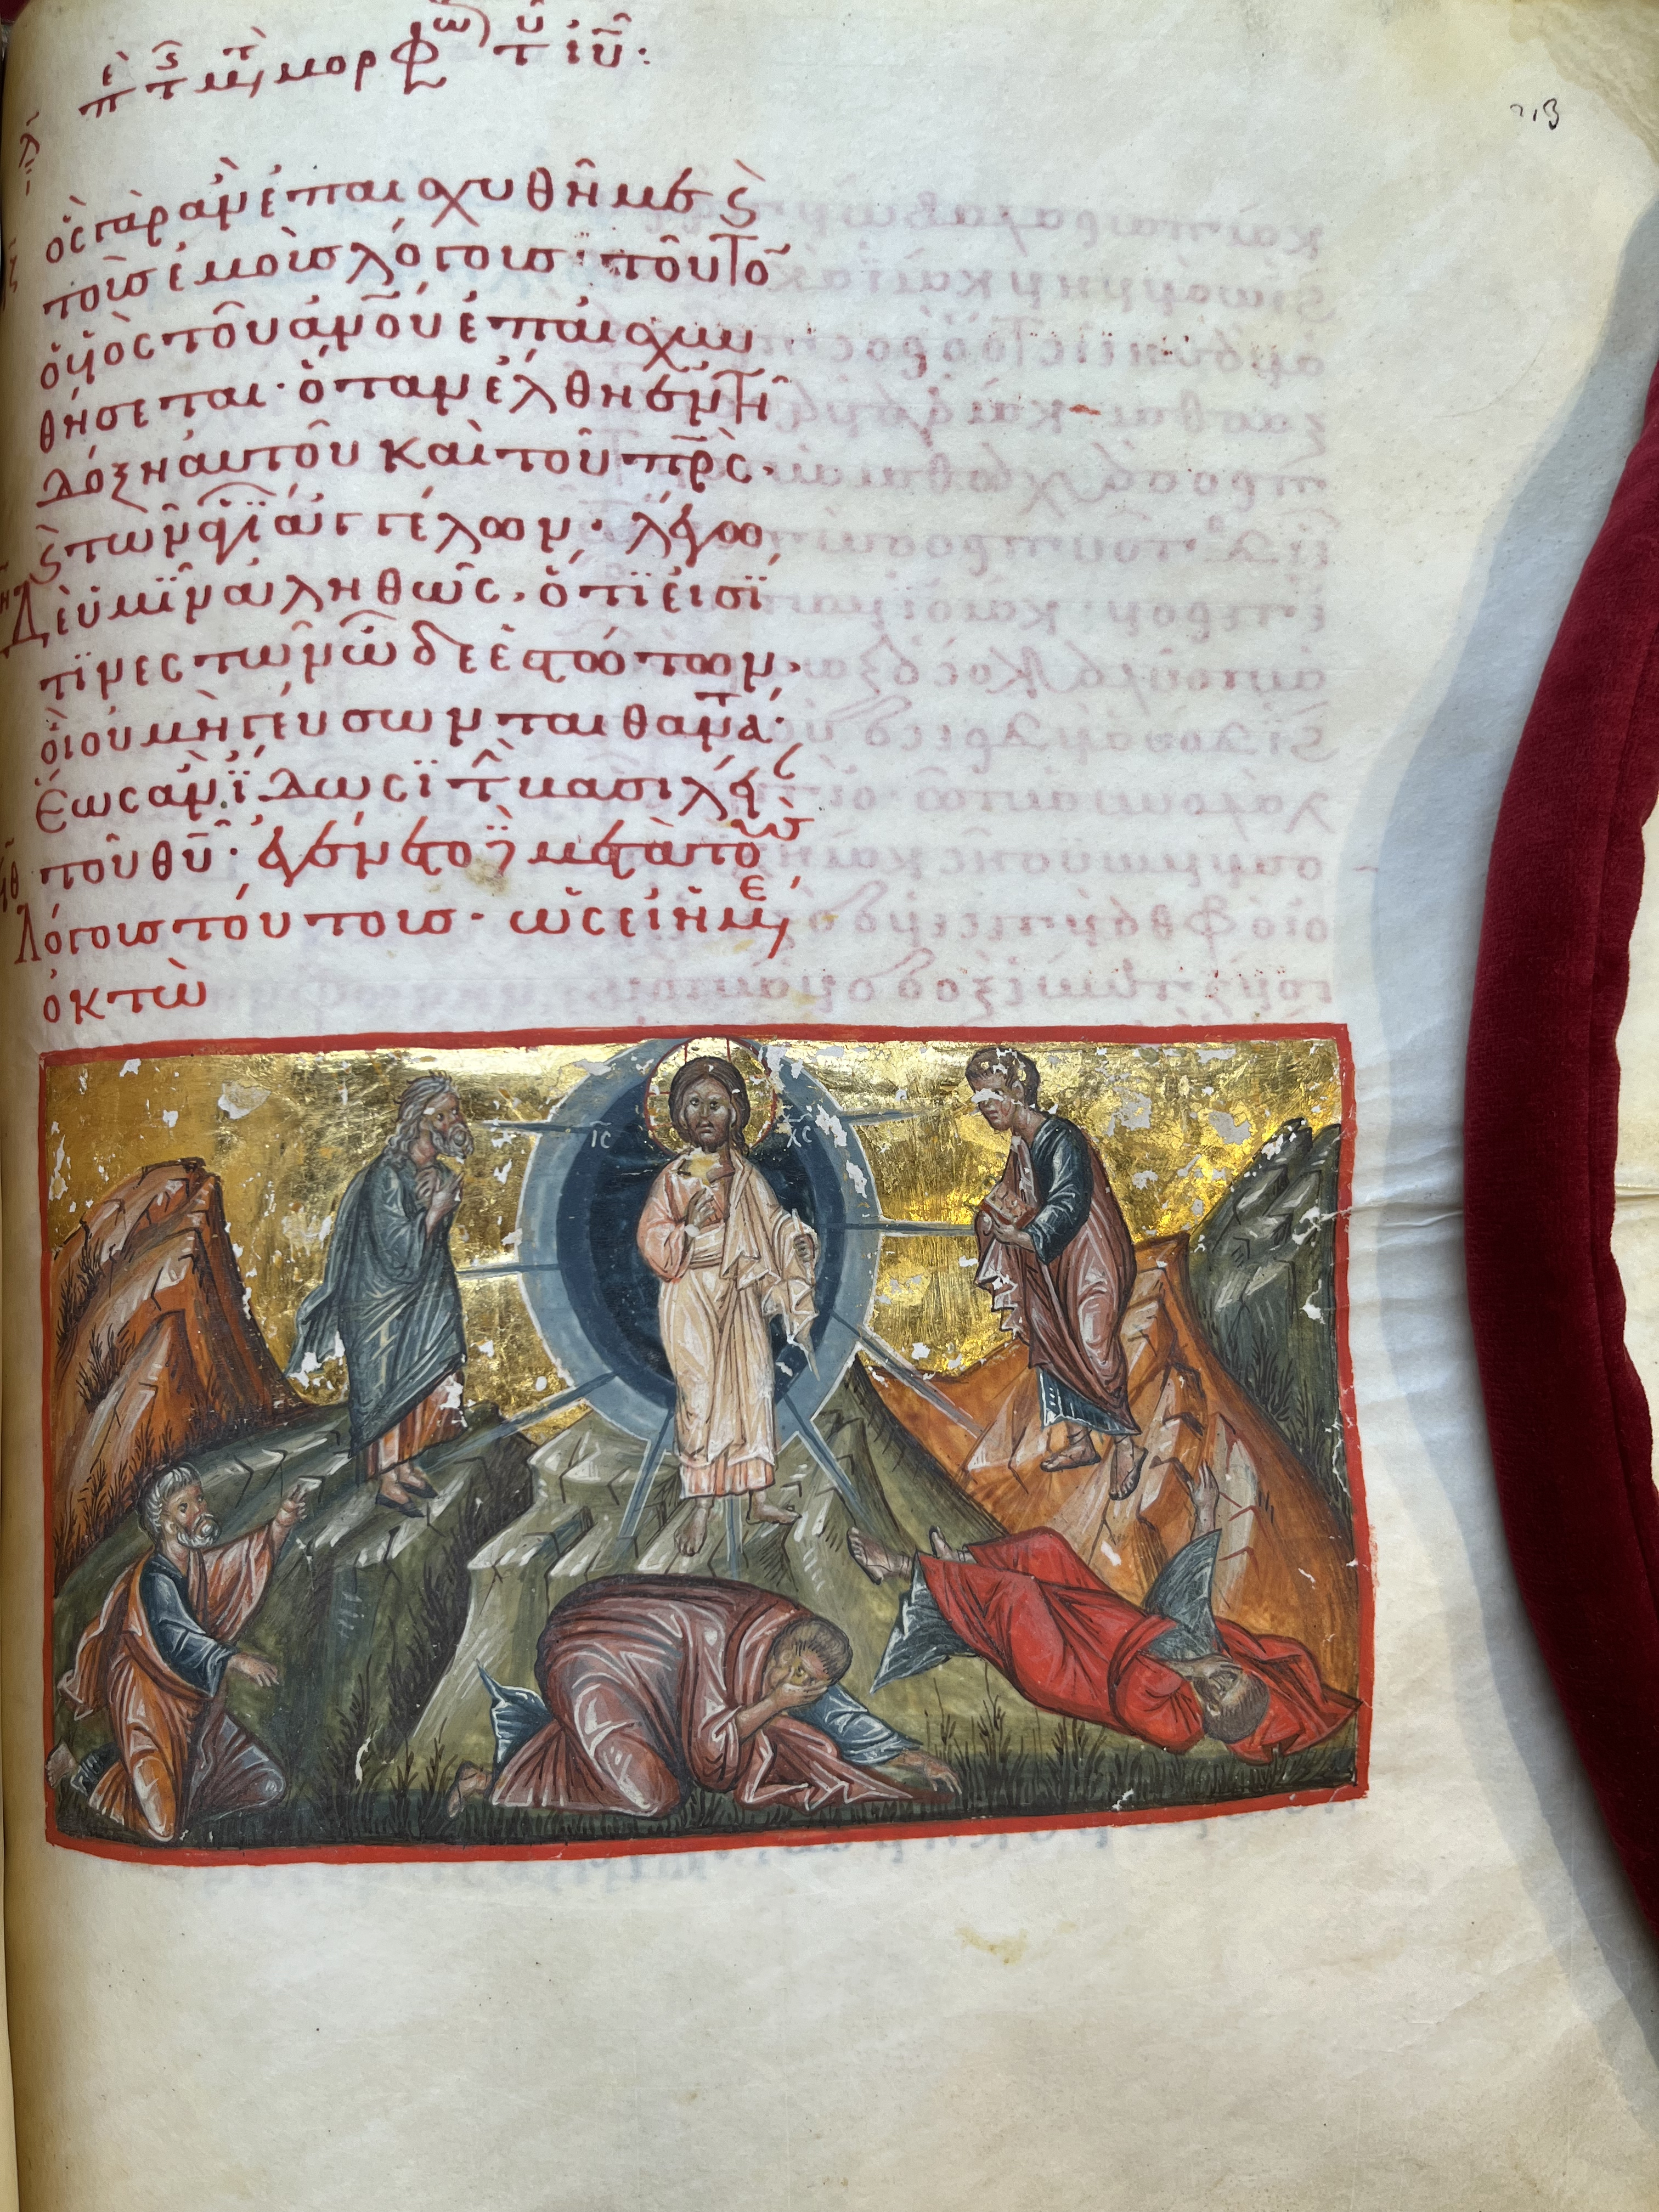 μορφω τ ιυ·
213
ὃς γὰρ ἂν ἐπαισχυνθῆ με ϗ
τοὺς ἐμοὺς λόγους· τοῦτο
ὁ υἱὸς τοῦ ἀνοῦ ἐπαισχυν
θήσεται· ὅταν ἔλθη ἐν τῆ
δόξη αὐτοῦ καὶ τοῦ πρς·
ϗ τῶν ἁγίων ἀγγέλων· λέγω
Δὲ ὑμῖν ἀληθῶς· ὅτι εἰσί
τινες τῶν ὧδε ἑστώτων·
οἳ οὐ μὴ γεύσωνται θανάτ
ἕως ἂν ἴδωσι τὴν βασιλεί
τοῦ θυ· ἐγένετο μετὰ τοὺς
Λόγους τούτους· ὡσεὶ ἡμέ
ὀκτὼ
ις χς